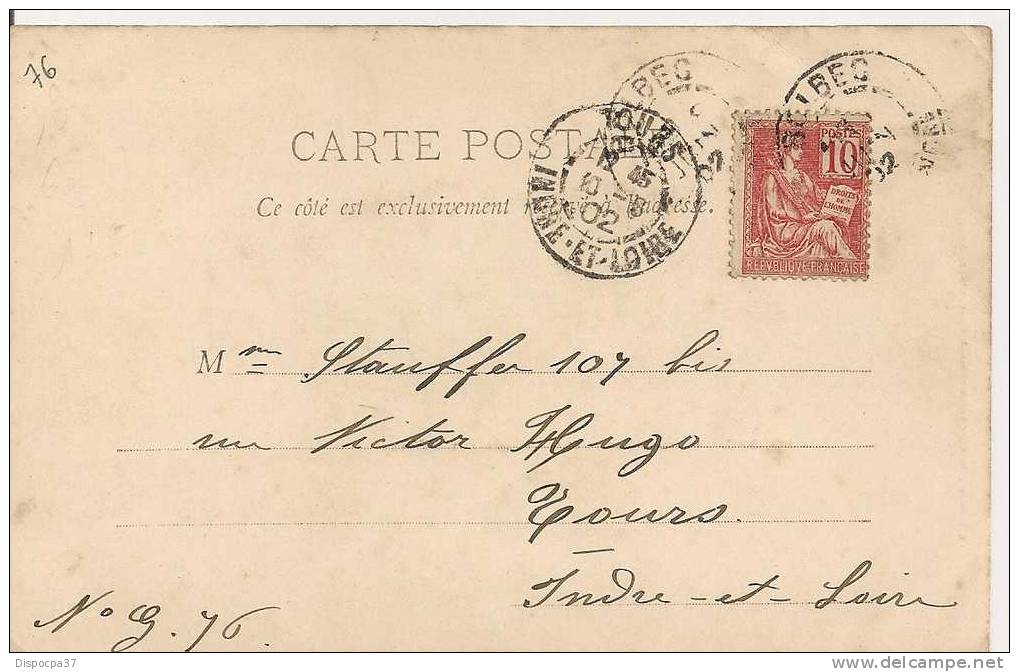 76
CARTE POSTALE
Ce côté est exclusivement réservé à l'adresse.
BOLBEC
BOLBEC
TOURS
15
10
02
INDRE-ET-LOIRE
POSTES
10
DROITS
DE
L'HOMME
REPVBLIQVE FRANÇAISE
Mme Stauffer 107 bis
rue Victor Hugo
Tours.
Indre-et-Loire
No G. 76
Dispocpa37
www.delcampe.net